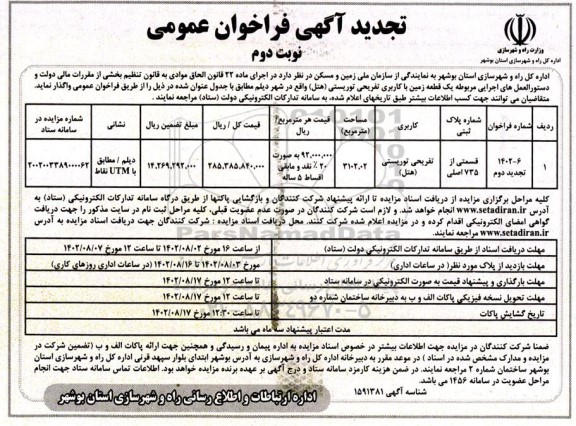 تجدید آگهی فراخوان عمومی
نوبت دوم
وزارت راه و شهرسازی
اداره کل راه و شهرسازی استان بوشهر
اداره کل راه و شهرسازی استان بوشهر به نمایندگی از سازمان ملی زمین و مسکن در نظر دارد در اجرای ماده ۲۲ قانون الحاق موادی به قانون تنظیم بخشی از مقررات مالی دولت و
دستورالعمل های اجرایی مربوطه یک قطعه زمین با کاربری تفریحی توریستی (هتل) واقع در شهر دیلم مطابق با جدول عنوان شده در ذیل را از طریق فراخوان عمومی واگذار نماید.
متقاضیان می توانند جهت کسب اطلاعات بیشتر طبق تاریخهای اعلام شده، به سامانه تدارکات الکترونیکی دولت (ستاد) مراجعه نمایند.
ردیف شماره فراخوان شماره پلاک ثبتی کاربری مساحت (مترمربع) قیمت هر مترمربع/ ریال قیمت کل / ریال مبلغ تضمین ریال نشانی شماره مزایده در سامانه ستاد
۱ ۱۴۰۲-۶ تجدید دوم قسمتی از ۷۳۵ اصلی تفریحی توریستی (هتل) ۳۱۰۲,۰۲ ۹۲,۰۰۰,۰۰۰ به صورت ۲۰٪ نقد و مابقی اقساط ۵ ساله ۲۸۵,۳۸۵,۸۴۰,۰۰۰ ۱۴,۲۶۹,۲۹۲,۰۰۰ دیلم / مطابق با UTM نقاط ۲۰۰۲۰۰۳۳۸۹۰۰۰۰۶۲
کلیه مراحل برگزاری مزایده از دریافت اسناد مزایده تا ارائه پیشنهاد شرکت کنندگان و بازگشایی پاکتها از طریق درگاه سامانه تدارکات الکترونیکی (ستاد) به
آدرس www.setadiran.ir انجام خواهد شد. و لازم است شرکت کنندگان در صورت عدم عضویت قبلی، کلیه مراحل ثبت نام در سایت مذکور را جهت دریافت
گواهی امضای الکترونیکی اقدام کرده و در مزایده اعلام شده شرکت کنند. محل دریافت اسناد مزایده : شرکت کنندگان جهت دریافت اسناد مزایده به آدرس
www.setadiran.ir مراجعه نمایند.
مهلت دریافت اسناد از طریق سامانه تدارکات الکترونیکی دولت (ستاد) از ساعت ۱۶ مورخ ۱۴۰۲/۰۸/۰۲ تا ساعت ۱۲ مورخ ۱۴۰۲/۰۸/۰۷
مهلت بازدید از پلاک مورد نظر (در ساعات اداری) مورخ ۱۴۰۲/۰۸/۰۳ تا ۱۴۰۲/۰۸/۱۶ (در ساعات اداری روزهای کاری)
مهلت بارگذاری و پیشنهاد قیمت به صورت الکترونیکی در سامانه ستاد تا ساعت ۱۲ مورخ ۱۴۰۲/۰۸/۱۷
مهلت تحویل نسخه فیزیکی پاکات الف و ب به دبیرخانه ساختمان شماره دو تا ساعت ۱۲ مورخ ۱۴۰۲/۰۸/۱۷
تاریخ گشایش پاکات تا ساعت ۱۲:۳۰ مورخ ۱۴۰۲/۰۸/۱۷
مدت اعتبار پیشنهاد سه ماه می باشد
ضمنا شرکت کنندگان در مزایده جهت اطلاعات بیشتر در خصوص اسناد مزایده به اداره پیمان و رسیدگی و همچنین جهت ارائه پاکات الف و ب (تضمین شرکت در
مزایده و مدارک مشخص شده در اسناد ) در موعد مقرر به دبیرخانه اداره کل راه و شهرسازی به آدرس بوشهر ابتدای بلوار سپهد قرنی اداره کل راه و شهرسازی استان
بوشهر ساختمان شماره ۲ مراجعه نمایند. در ضمن هزینه کارمزد سامانه ستاد و درج آگهی بر عهده برنده مزایده خواهد بود. اطلاعات تماس سامانه ستاد جهت انجام
مراحل عضویت در سامانه ۱۴۵۶ می باشد.
شناسه آگهی ۱۵۹۱۳۸۱
اداره ارتباطات و اطلاع رسانی راه و شهرسازی استان بوشهر